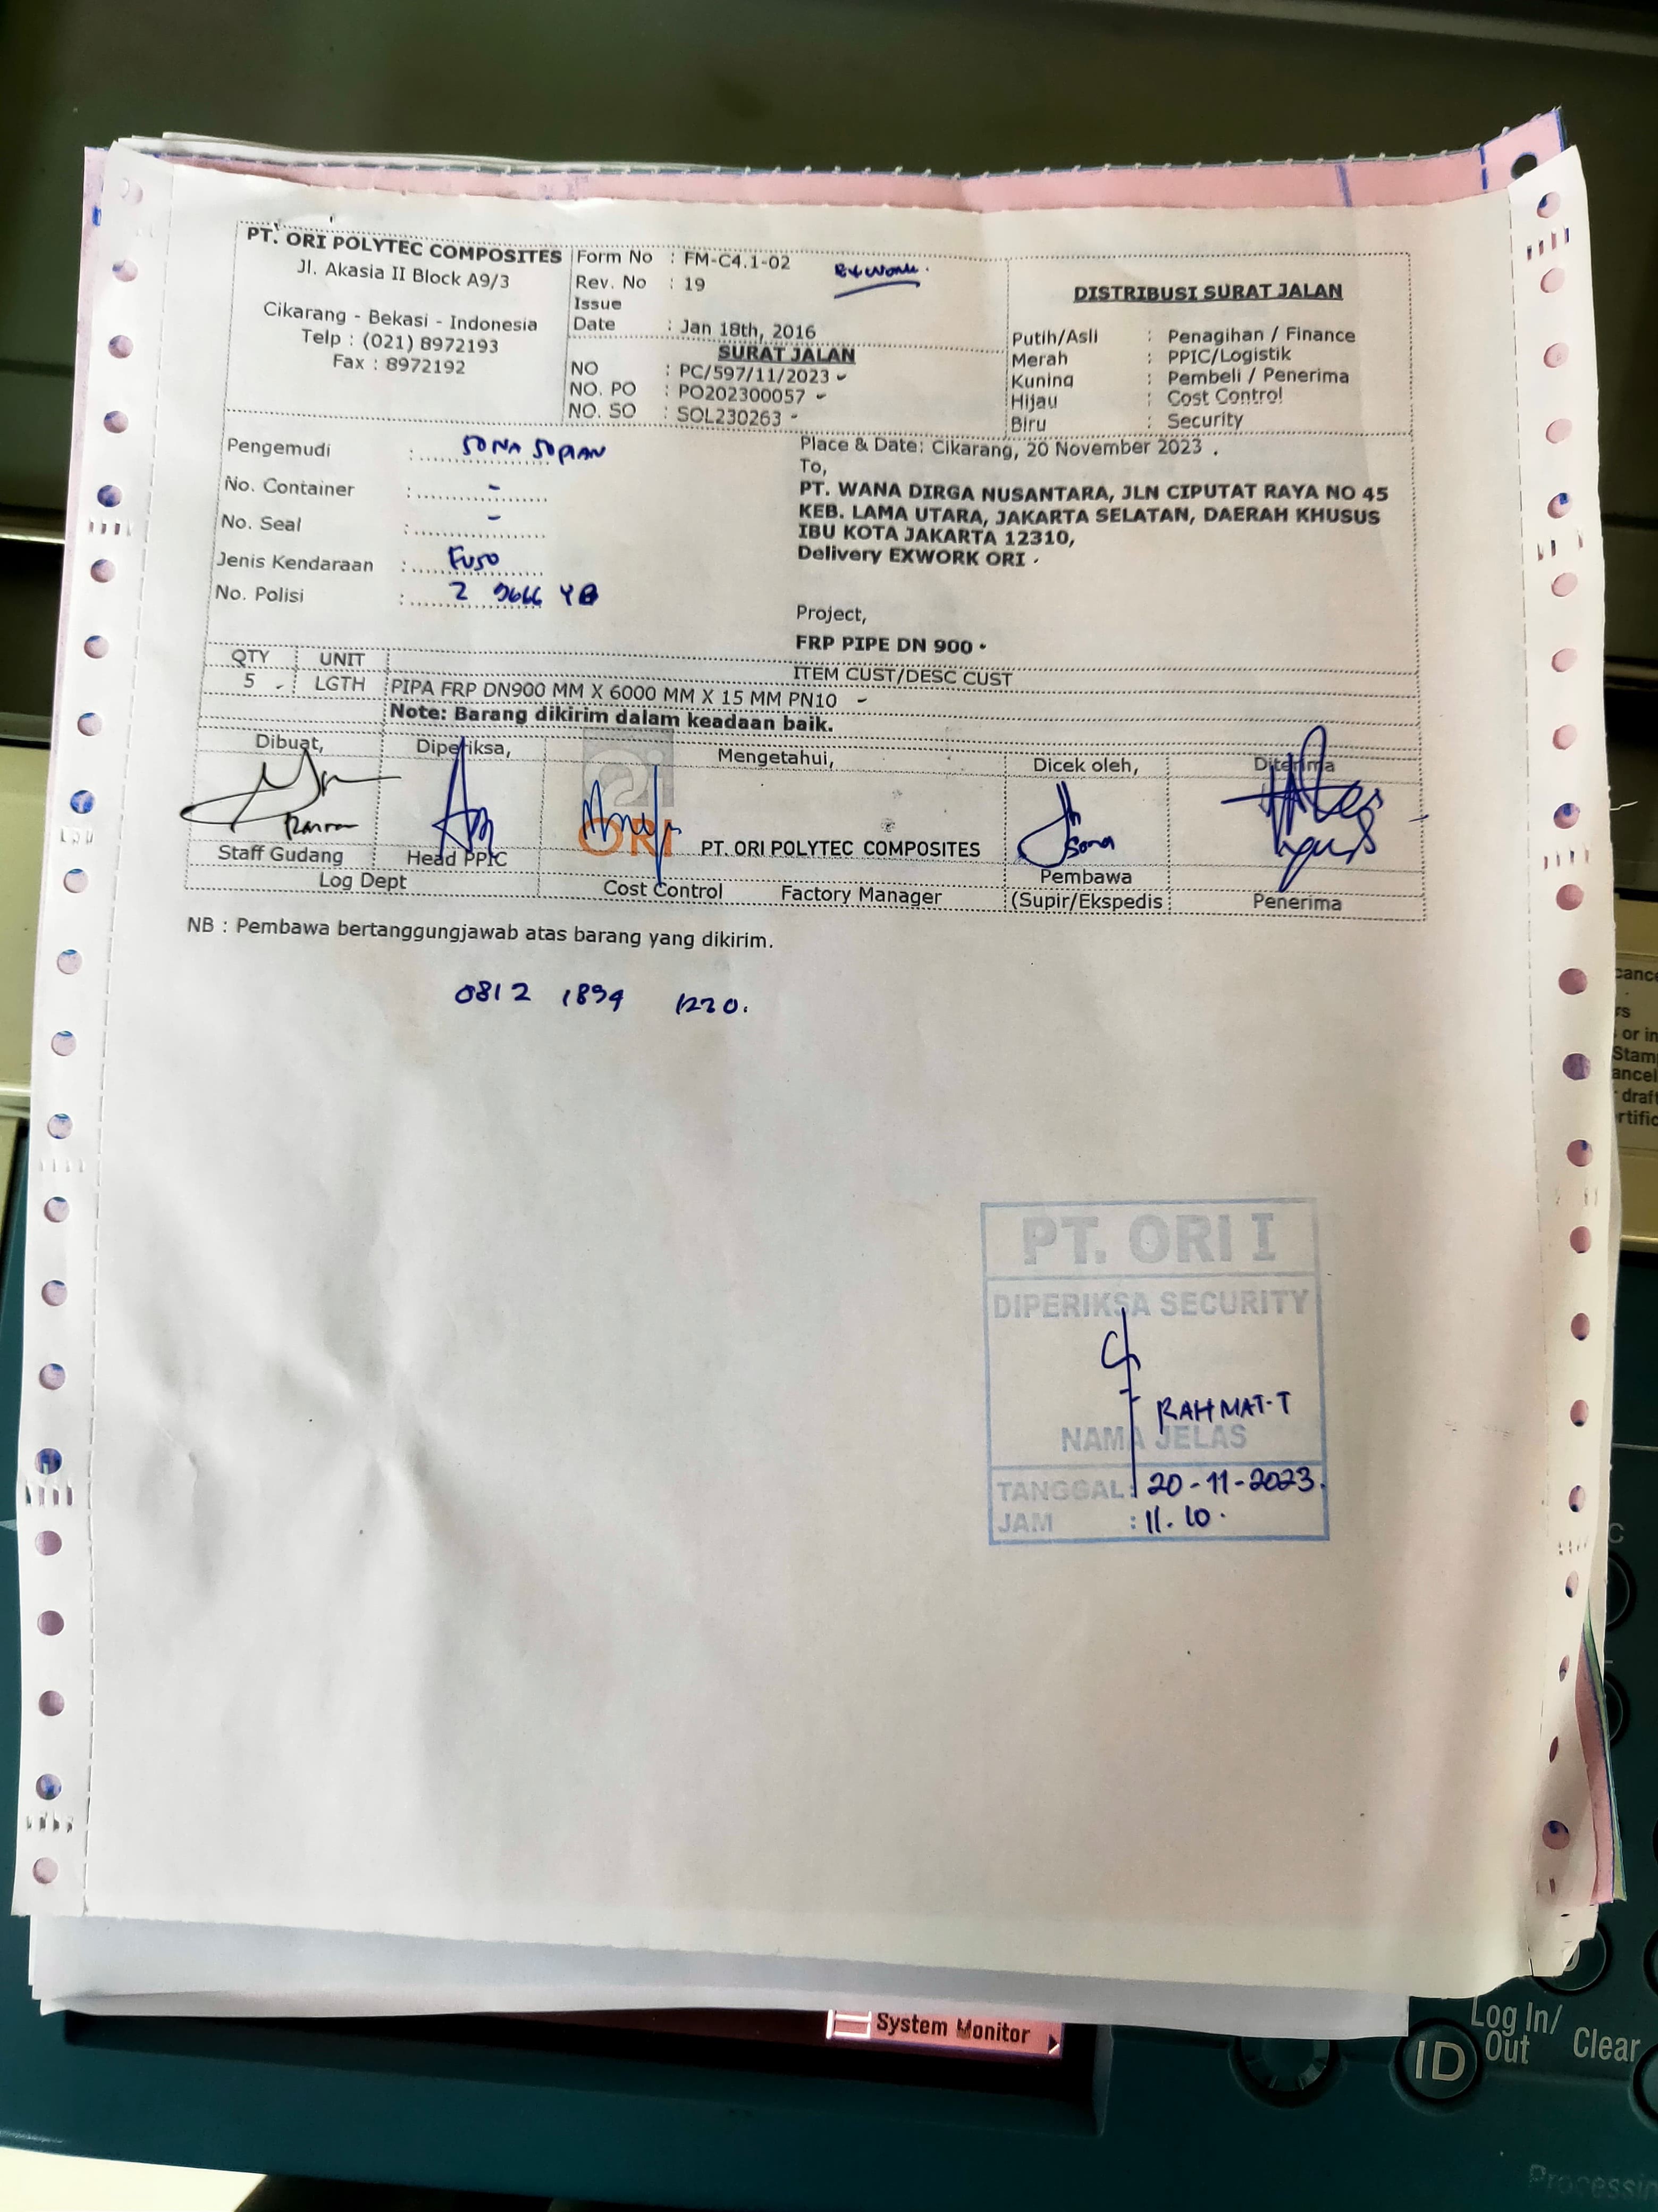 PT. ORI POLYTEC COMPOSITES
Jl. Akasia II Block A9/3
Cikarang - Bekasi - Indonesia
Telp : (021) 8972193
Fax : 8972192
Form No : FM-C4.1-02
Exwork.
Rev. No : 19
Issue
Date : Jan 18th, 2016
SURAT JALAN
NO : PC/597/11/2023
NO. PO : PO202300057
NO. SO : SOL230263
DISTRIBUSI SURAT JALAN
Putih/Asli : Penagihan / Finance
Merah : PPIC/Logistik
Kuning : Pembeli / Penerima
Hijau : Cost Control
Biru : Security
Pengemudi : SONA SOPIAN
No. Container : -
No. Seal : -
Jenis Kendaraan : FUSO
No. Polisi : Z 9666 YB
Place & Date: Cikarang, 20 November 2023 .
To,
PT. WANA DIRGA NUSANTARA, JLN CIPUTAT RAYA NO 45
KEB. LAMA UTARA, JAKARTA SELATAN, DAERAH KHUSUS
IBU KOTA JAKARTA 12310,
Delivery EXWORK ORI
Project,
FRP PIPE DN 900
QTY UNIT ITEM CUST/DESC CUST
5 LGTH PIPA FRP DN900 MM X 6000 MM X 15 MM PN10
Note: Barang dikirim dalam keadaan baik.
Dibuat, Diperiksa, Mengetahui, Dicek oleh, Diterima
Sona
ORI PT. ORI POLYTEC COMPOSITES
Staff Gudang Head PPIC Cost Control Factory Manager Pembawa
Log Dept (Supir/Ekspedis Penerima
NB : Pembawa bertanggungjawab atas barang yang dikirim.
0812 1894 1220.
PT. ORI I
DIPERIKSA SECURITY
RAHMAT-T
NAMA JELAS
TANGGAL : 20-11-2023.
JAM : 11.10.
System Monitor
Log In/
Out
Clear
ID